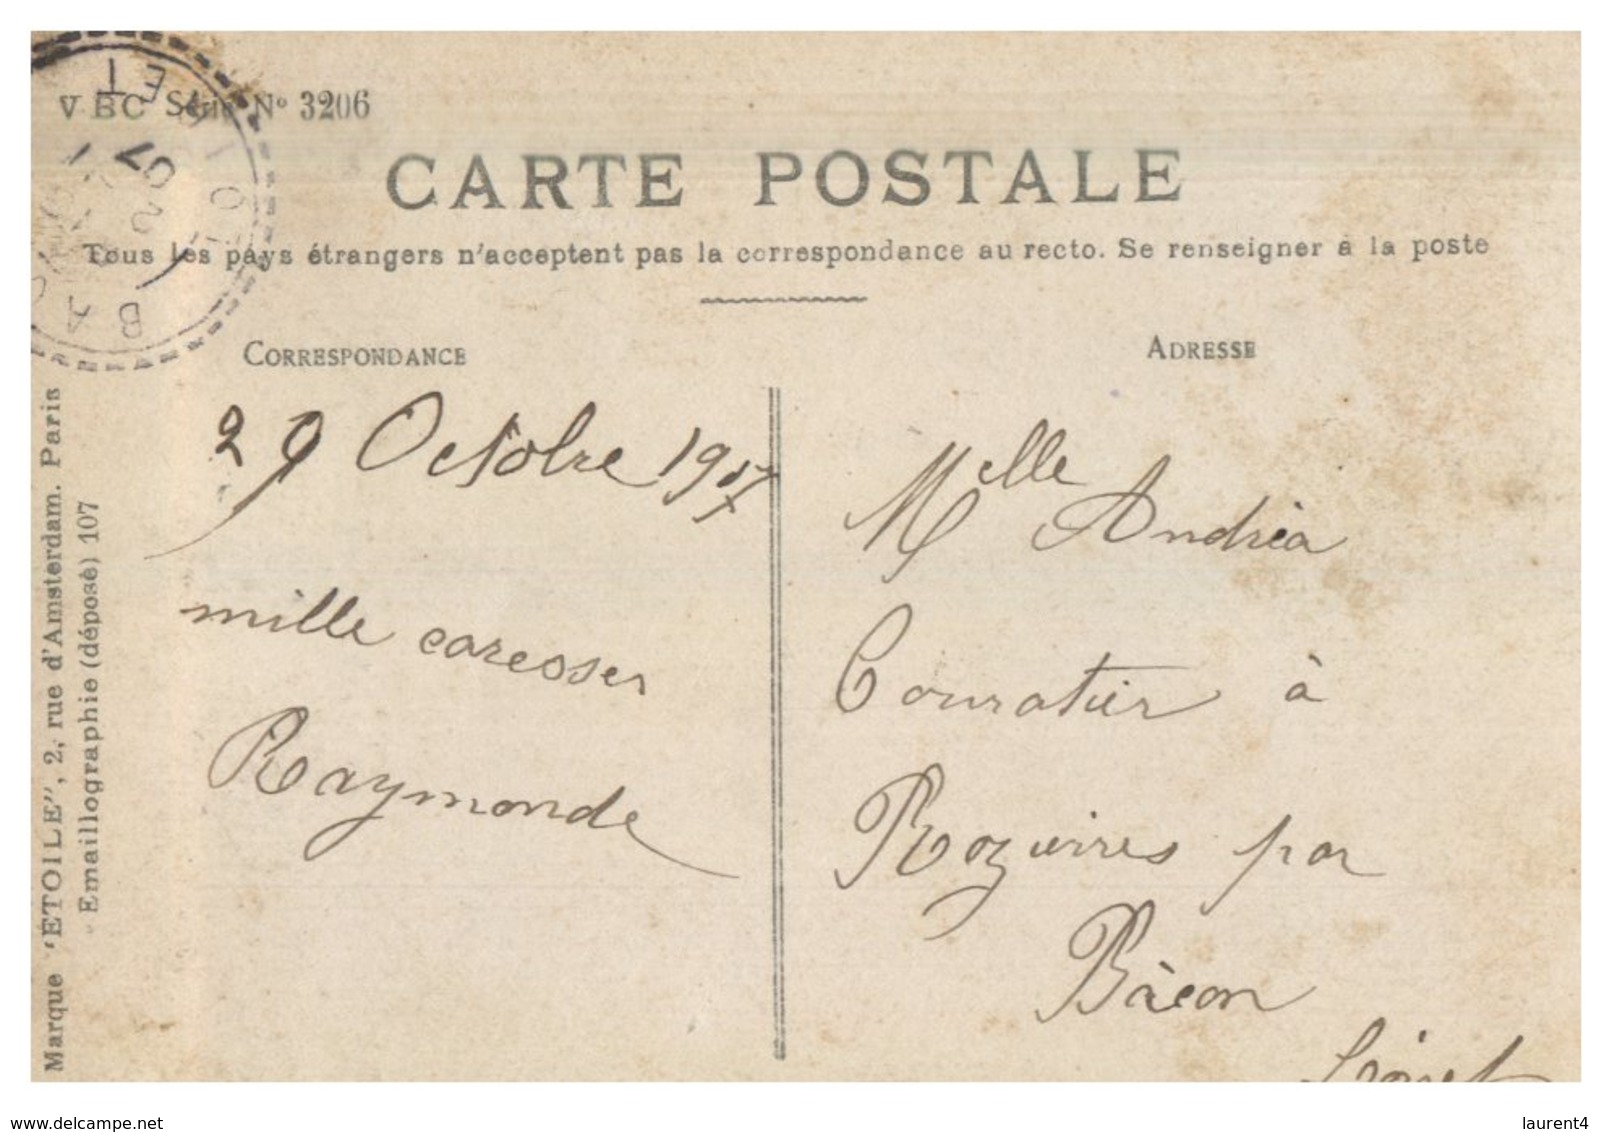 VBC Série Nº 3206
CARTE POSTALE
Tous les pays étrangers n'acceptent pas la correspondance au recto. Se renseigner à la poste
CORRESPONDANCE
ADRESSE
29 Octobre 1907
mille caresses
Raymonde
Melle Andréa
Couratier à
Rozières par
Bàcon
Loiret
Marque "ETOILE", 2, rue d'Amsterdam. Paris
Emaillographie (déposé) 107
www.delcampe.net
laurent4